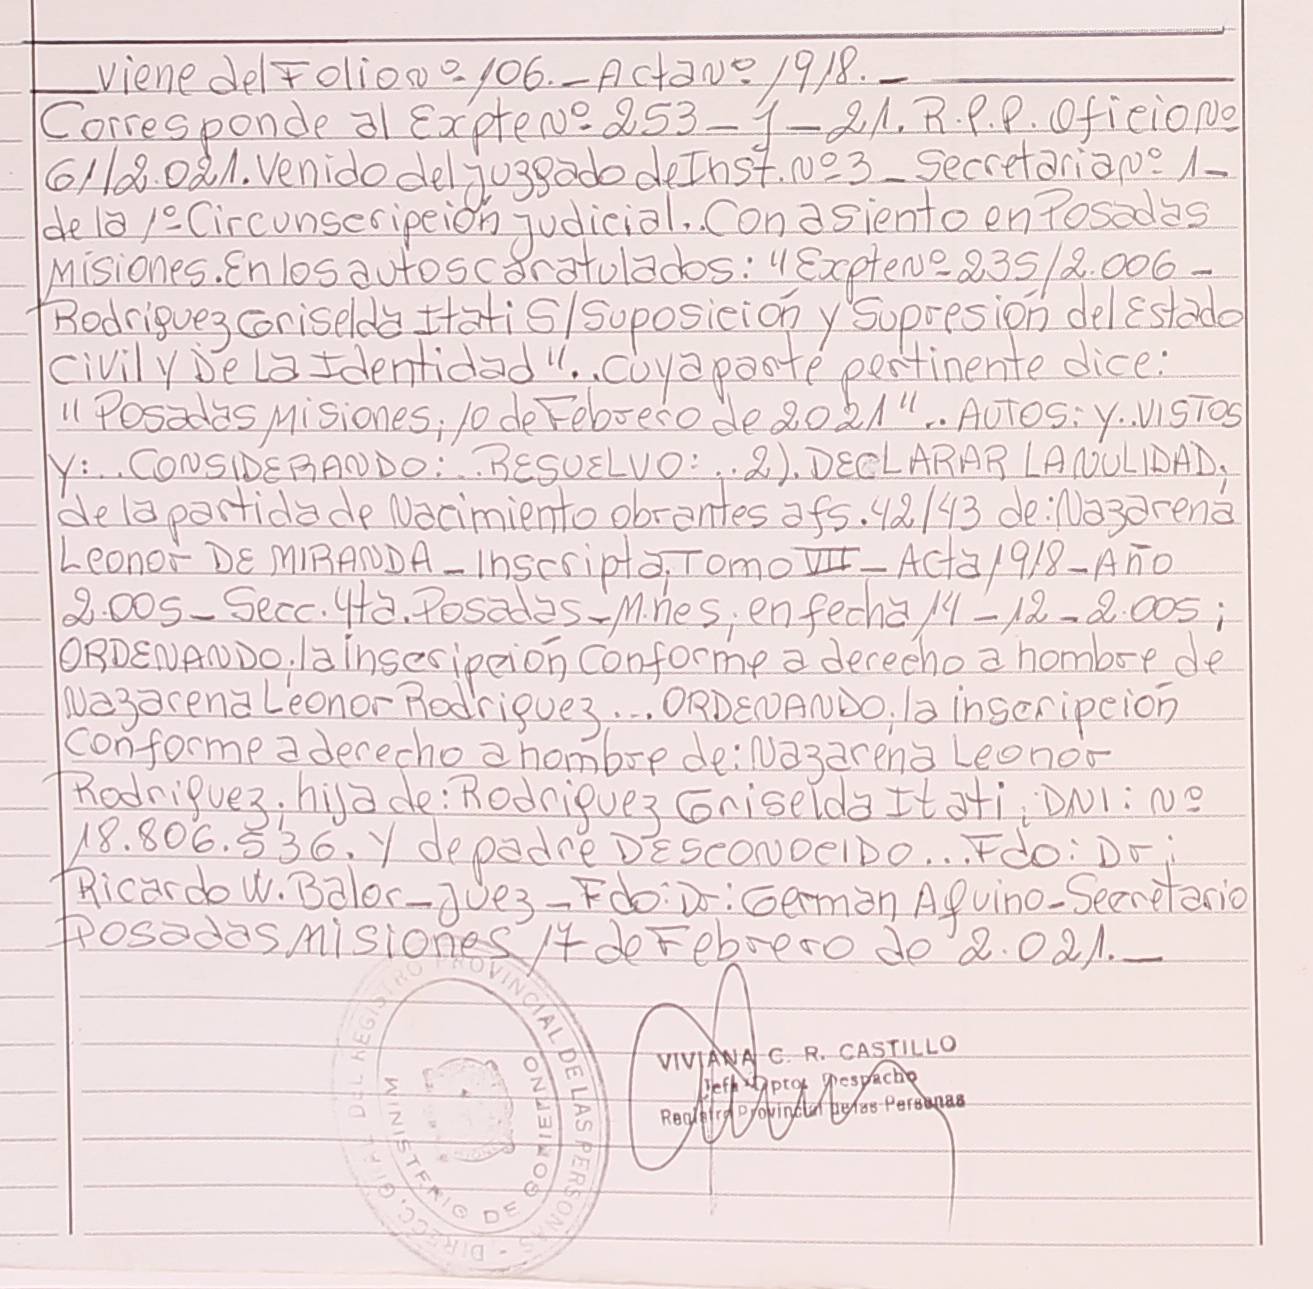 viene del Folio nº 106.- Acta nº 1918.-
Corresponde al Expte nº 253-J-21. R.P.P. Oficio nº
61/2.021. Venido del juzgado de Inst. nº 3 - Secretaria nº 1-
de la 1º Circunscripción judicial.. Con asiento en Posadas
Misiones. En los autos caratulados: "Expte nº 235/2.006 -
Rodriguez Griselda Itati S/Suposición y Supresión del Estado
Civil y De La Identidad".. cuya parte pertinente dice:
"Posadas Misiones, 10 de Febrero de 2021".. AUTOS: Y.. VISTOS
Y:.. CONSIDERANDO:.. RESUELVO:.. 2). DECLARAR LA NULIDAD,
de la partida de Nacimiento obrantes a fs. 42/43 de: Nazarena
Leonor DE MIRANDA - Inscripta, Tomo VII - Acta 1918 - Año
2.005 - Secc. 4ta. Posadas - M.nes, en fecha 14-12-2.005;
ORDENANDO, la inscripción Conforme a derecho a nombre de
Nazarena Leonor Rodriguez... ORDENANDO, la inscripción
Conforme a derecho a nombre de: Nazarena Leonor
Rodriguez, hija de: Rodriguez Griselda Itati, DNI: Nº
18.806.536. Y de padre DESCONOCIDO... Fdo: Dr:
Ricardo W. Balor - Juez - Fdo: Dr: German Aquino - Secretario
Posadas Misiones 17 de Febrero de 2.021.-
DIRECC. GRAL. DEL REGISTRO PROVINCIAL DE LAS PERSONAS -
MINISTERIO DE GOBIERNO
VIVIANA C. R. CASTILLO
Jefa Dpto. Despacho
Registro Provincial de las Personas